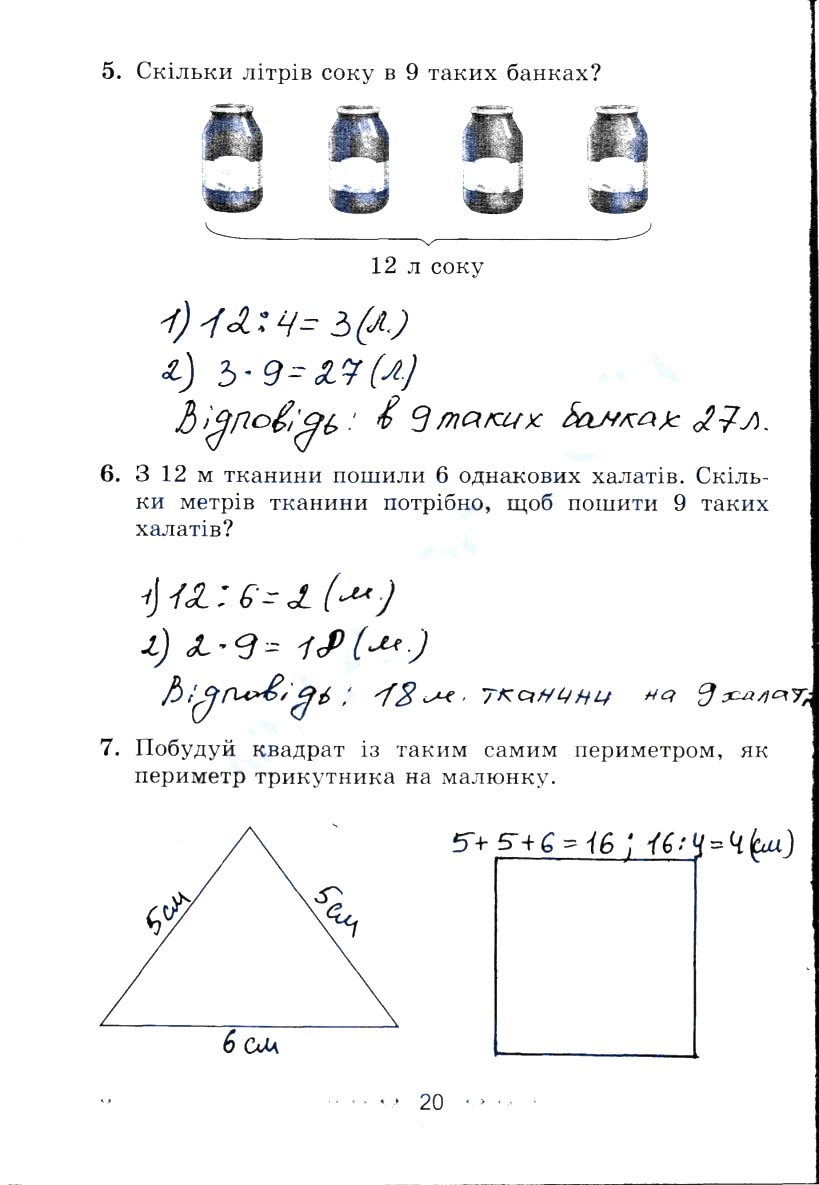 5. Скільки літрів соку в 9 таких банках?
12 л соку
1) 12 : 4 = 3 (л.)
2) 3 · 9 = 27 (л.)
Відповідь: в 9 таких банках 27 л.
6. З 12 м тканини пошили 6 однакових халатів. Скіль-
ки метрів тканини потрібно, щоб пошити 9 таких
халатів?
1) 12 : 6 = 2 (м.)
2) 2 · 9 = 18 (м.)
Відповідь: 18 м. тканини на 9 халат
7. Побудуй квадрат із таким самим периметром, як
периметр трикутника на малюнку.
5 + 5 + 6 = 16 ; 16 : 4 = 4 (см)
5 см
5 см
6 см
20